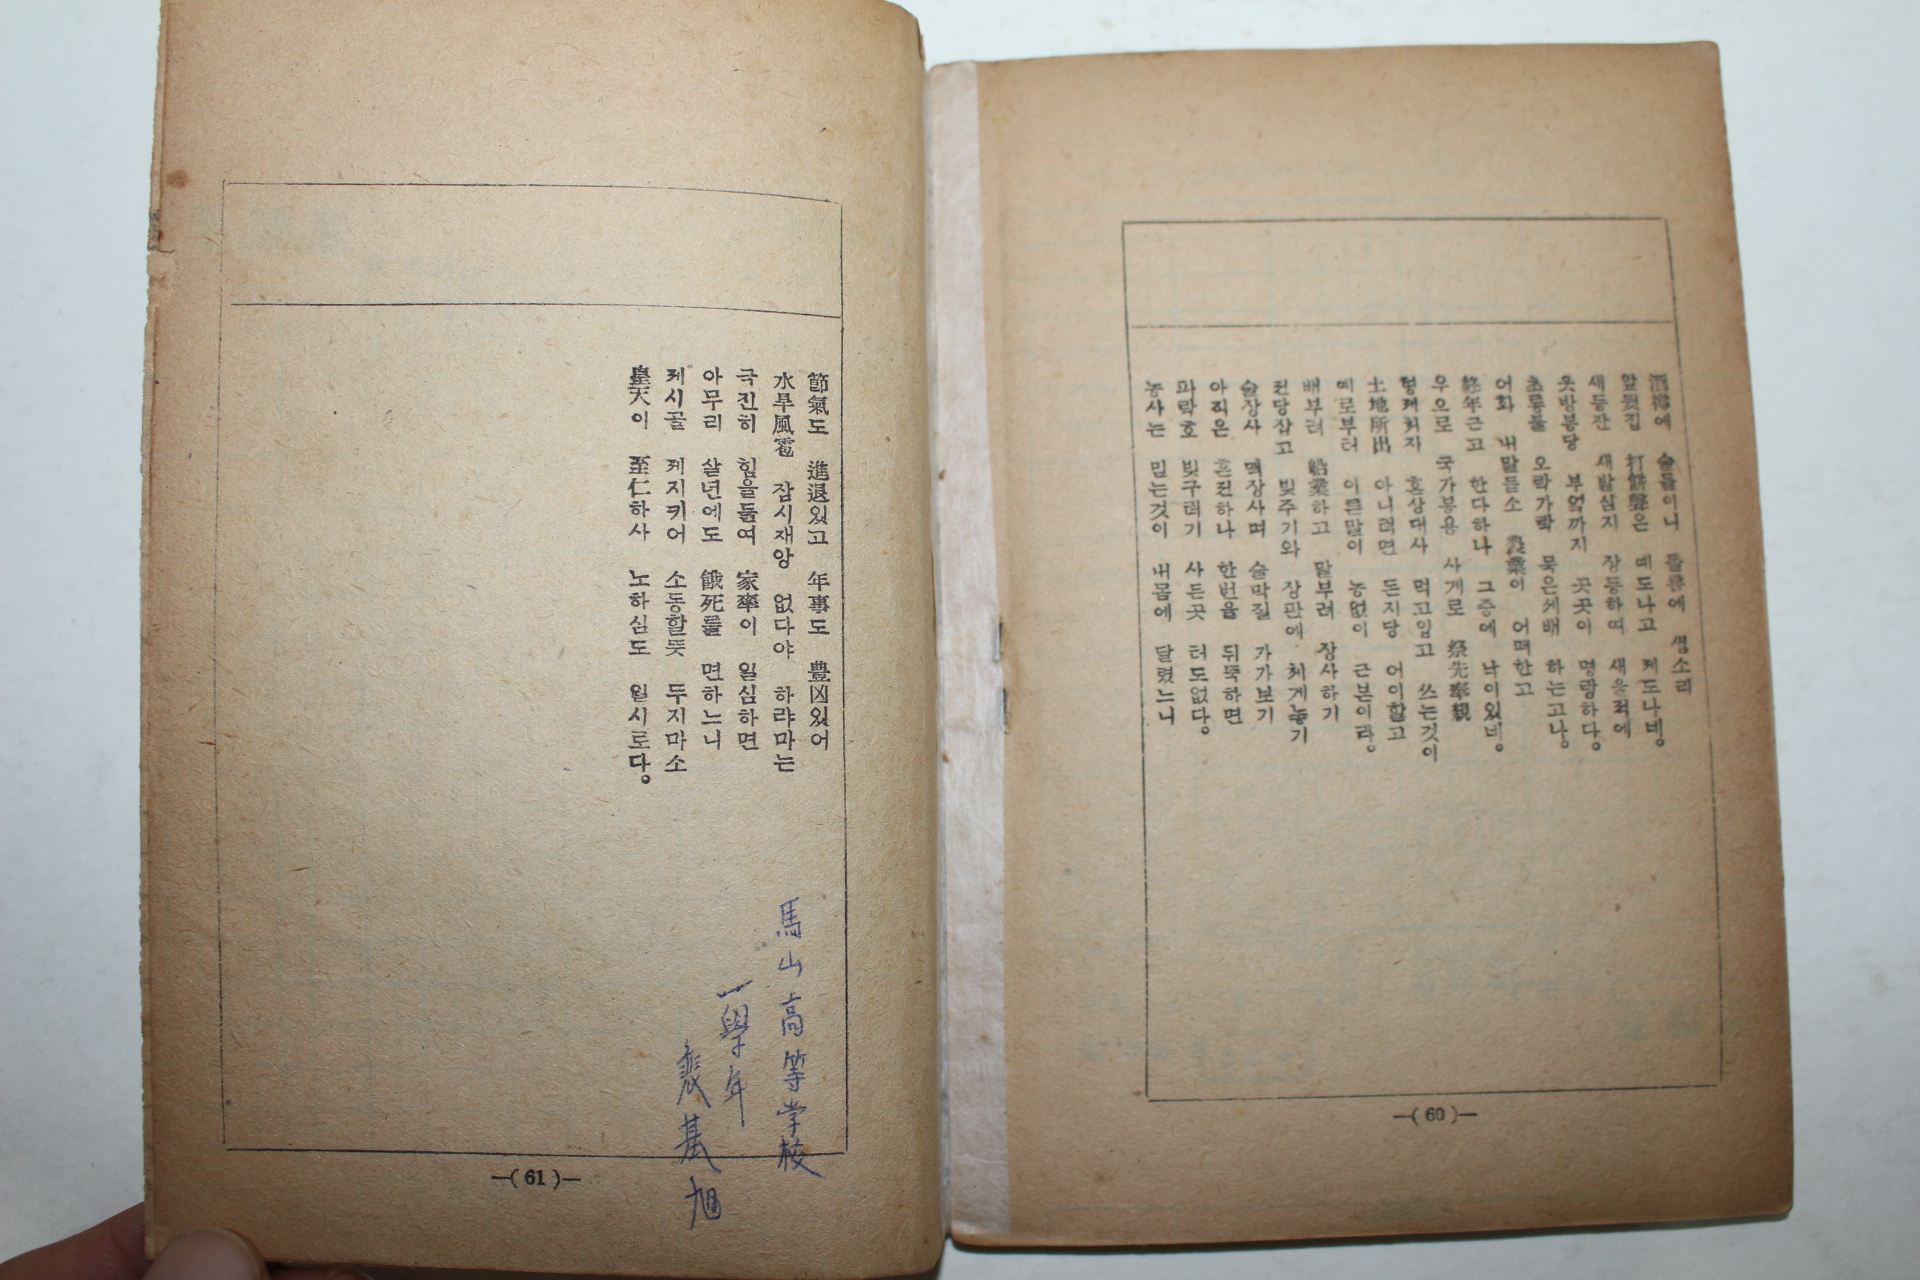 酒樽에 술들이니 돌틈에 샘소리
앞뒷집 打餠聲은 예도나고 제도나네。
새등잔 새발심지 장등하여 새울적에
웃방봉당 부엌까지 곳곳이 명랑하다。
초롱불 오락가락 묵은세배 하는고나。
어화 내말듣소 農業이 어떠한고
終年근고 한다하나 그중에 낙이있네。
우으로 국가봉용 사계로 祭先奉親
형제처자 혼상대사 먹고입고 쓰는것이
土地所出 아니러면 돈지당 어이할고
예로부터 이른말이 농없이 근본이라。
배부려 船業하고 말부려 장사하기
전당잡고 빚주기와 장판에 체계놓기
술장사 떡장사며 술막질 가가보기
아직은 흔전하나 한번을 뒤뚝하면
파락호 빚구러기 사든곳 터도없다。
농사는 믿는것이 내몸에 달렸느니
—( 60 )—
節氣도 進退있고 年事도 豊凶있어
水旱風雹 잠시재앙 없다야 하랴마는
극진히 힘을들여 家率이 일심하면
아무리 살년에도 餓死를 면하느니
제시골 제지키어 소동할뜻 두지마소
皇天이 至仁하사 노하심도 일시로다。
馬山高等学校
一學年
裵基旭
—( 61 )—